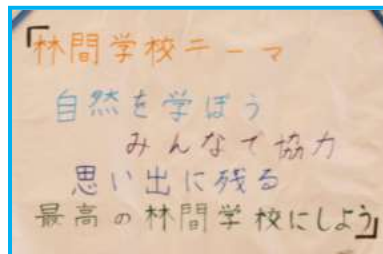 「林間学校テーマ
自然を学ぼう
みんなで協力
思い出に残る
最高の林間学校にしよう」